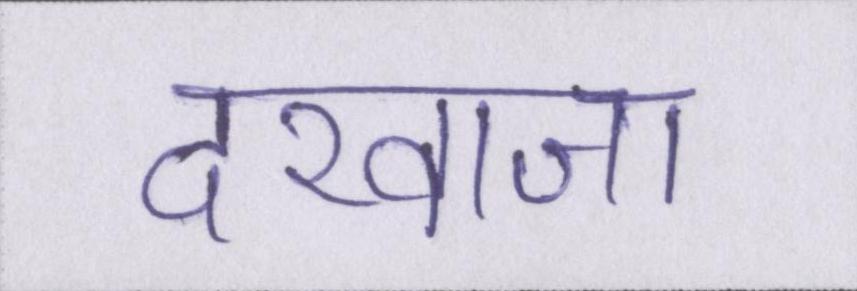 दरवाजा